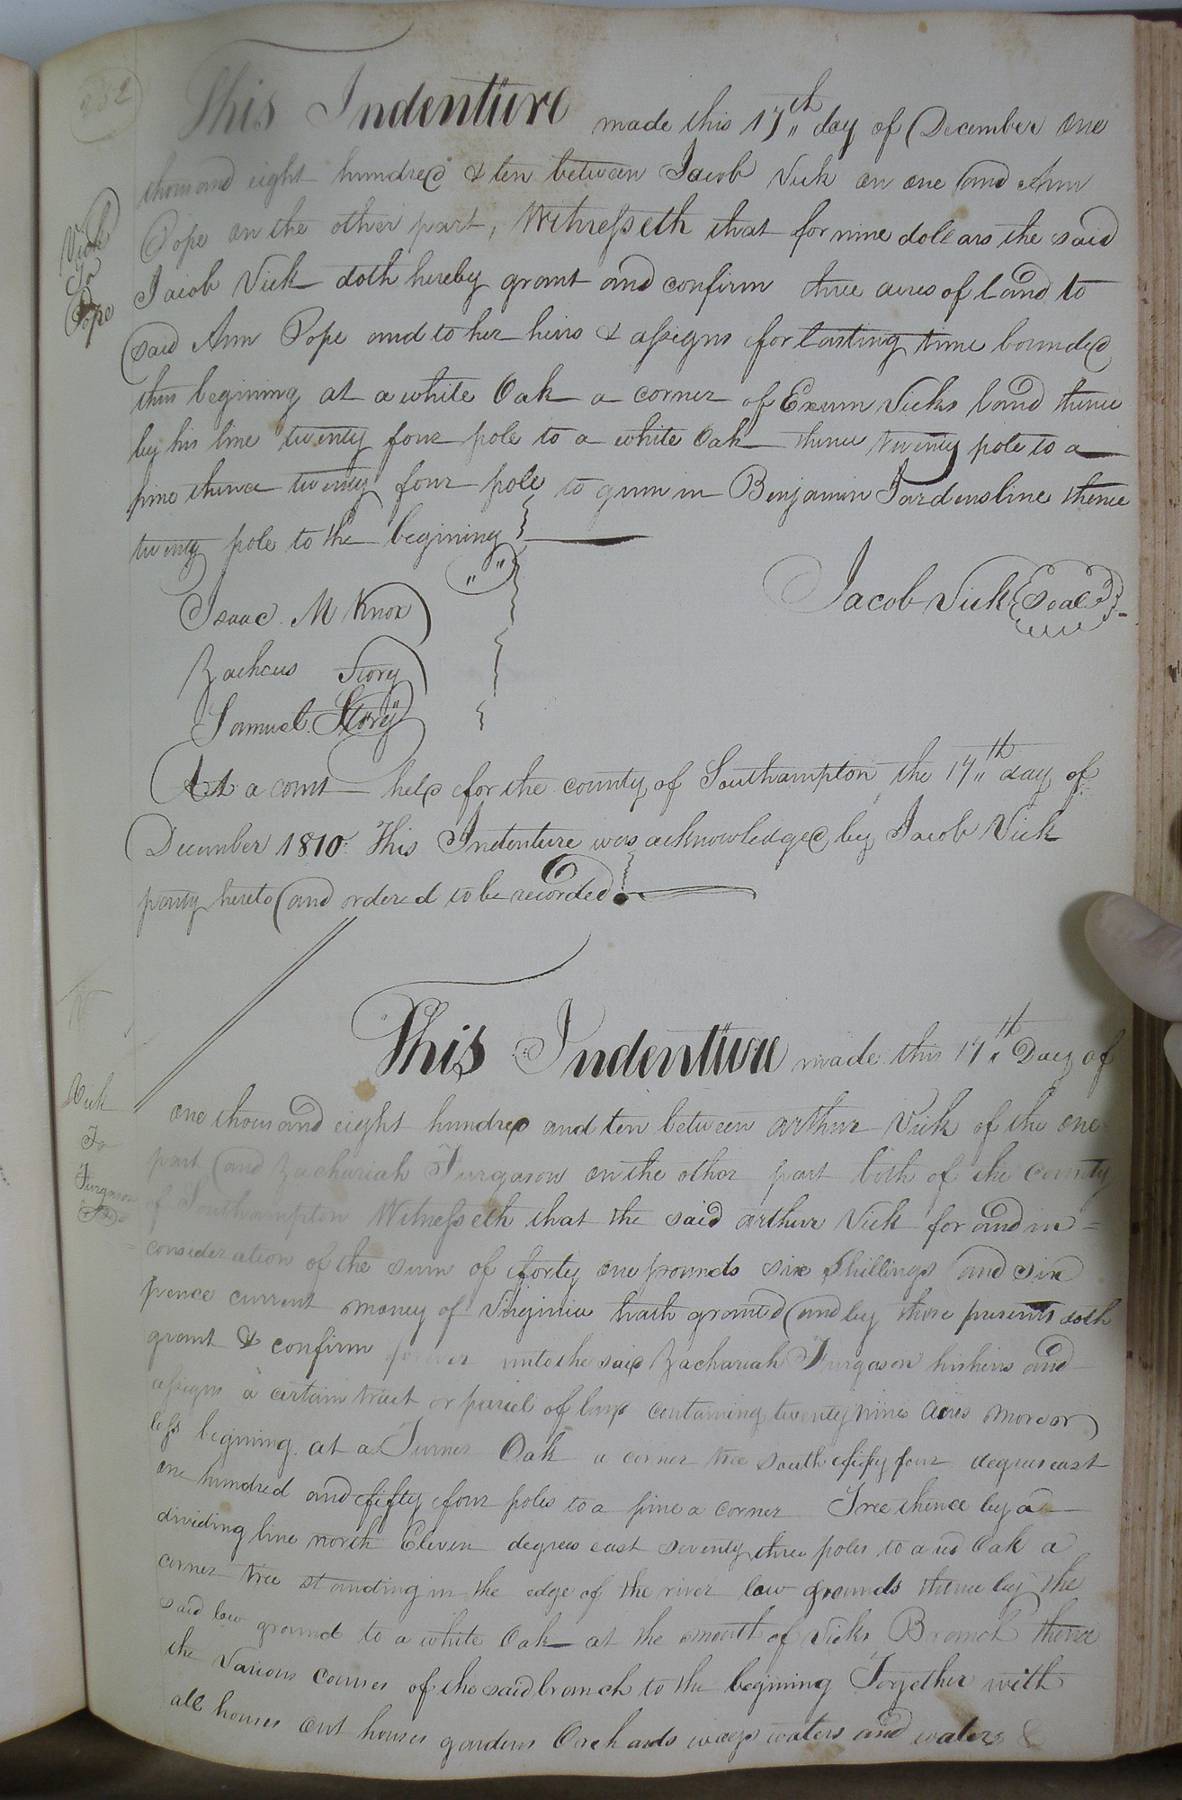 232
This Indenture made this 17th day of December one
thousand eight hundred & ten between Jacob Vick on one and Ann
Pope on the other part, Witnesseth that for nine dollars the said
Jacob Vick doth hereby grant and confirm three acres of land to
said Ann Pope and to her heirs & assigns for lasting time bounded
thus begining at a white Oak a corner of Exum Vicks land thence
by his line twenty four pole to a white Oak thence twenty pole to a
pine thence twenty four pole to gum in Benjamin Jardens line thence
twenty pole to the begining
Vick
To
Pope
Jacob Vick Seal
Isaac M Knox
Zacheus Story
Samuel Story
At a court held for the county of Southampton the 17th day of
December 1810 This Indenture was acknowledged by Jacob Vick
party hereto and ordered to be recorded
This Indenture made this 17th Day of
one thousand eight hundred and ten between arthur Vick of the one
part and Zachariah Furgason on the other part both of the county
of Southampton Witnesseth that the said arthur Vick for and in =
consideration of the sum of forty one pounds six Shillings and six
pence current money of Virginia hath granted and by these presents doth
grant & confirm forever unto the said Zachariah Furgason his heirs and
assigns a certain tract or parcel of land containing twenty nine acres more or
less begining at a Turner Oak a corner tree south fifty four degrees east
one hundred and fifty four poles to a pine a corner Tree thence by a
dividing line north Eleven degrees east seventy three poles to a red Oak a
corner tree standing in the edge of the river low grounds thence by the
said low ground to a white Oak at the mouth of Vicks Branch thence
the various courses of the said branch to the begining Together with
all houses out houses gardens Orchards ways waters and water
Vick
To
Furgason